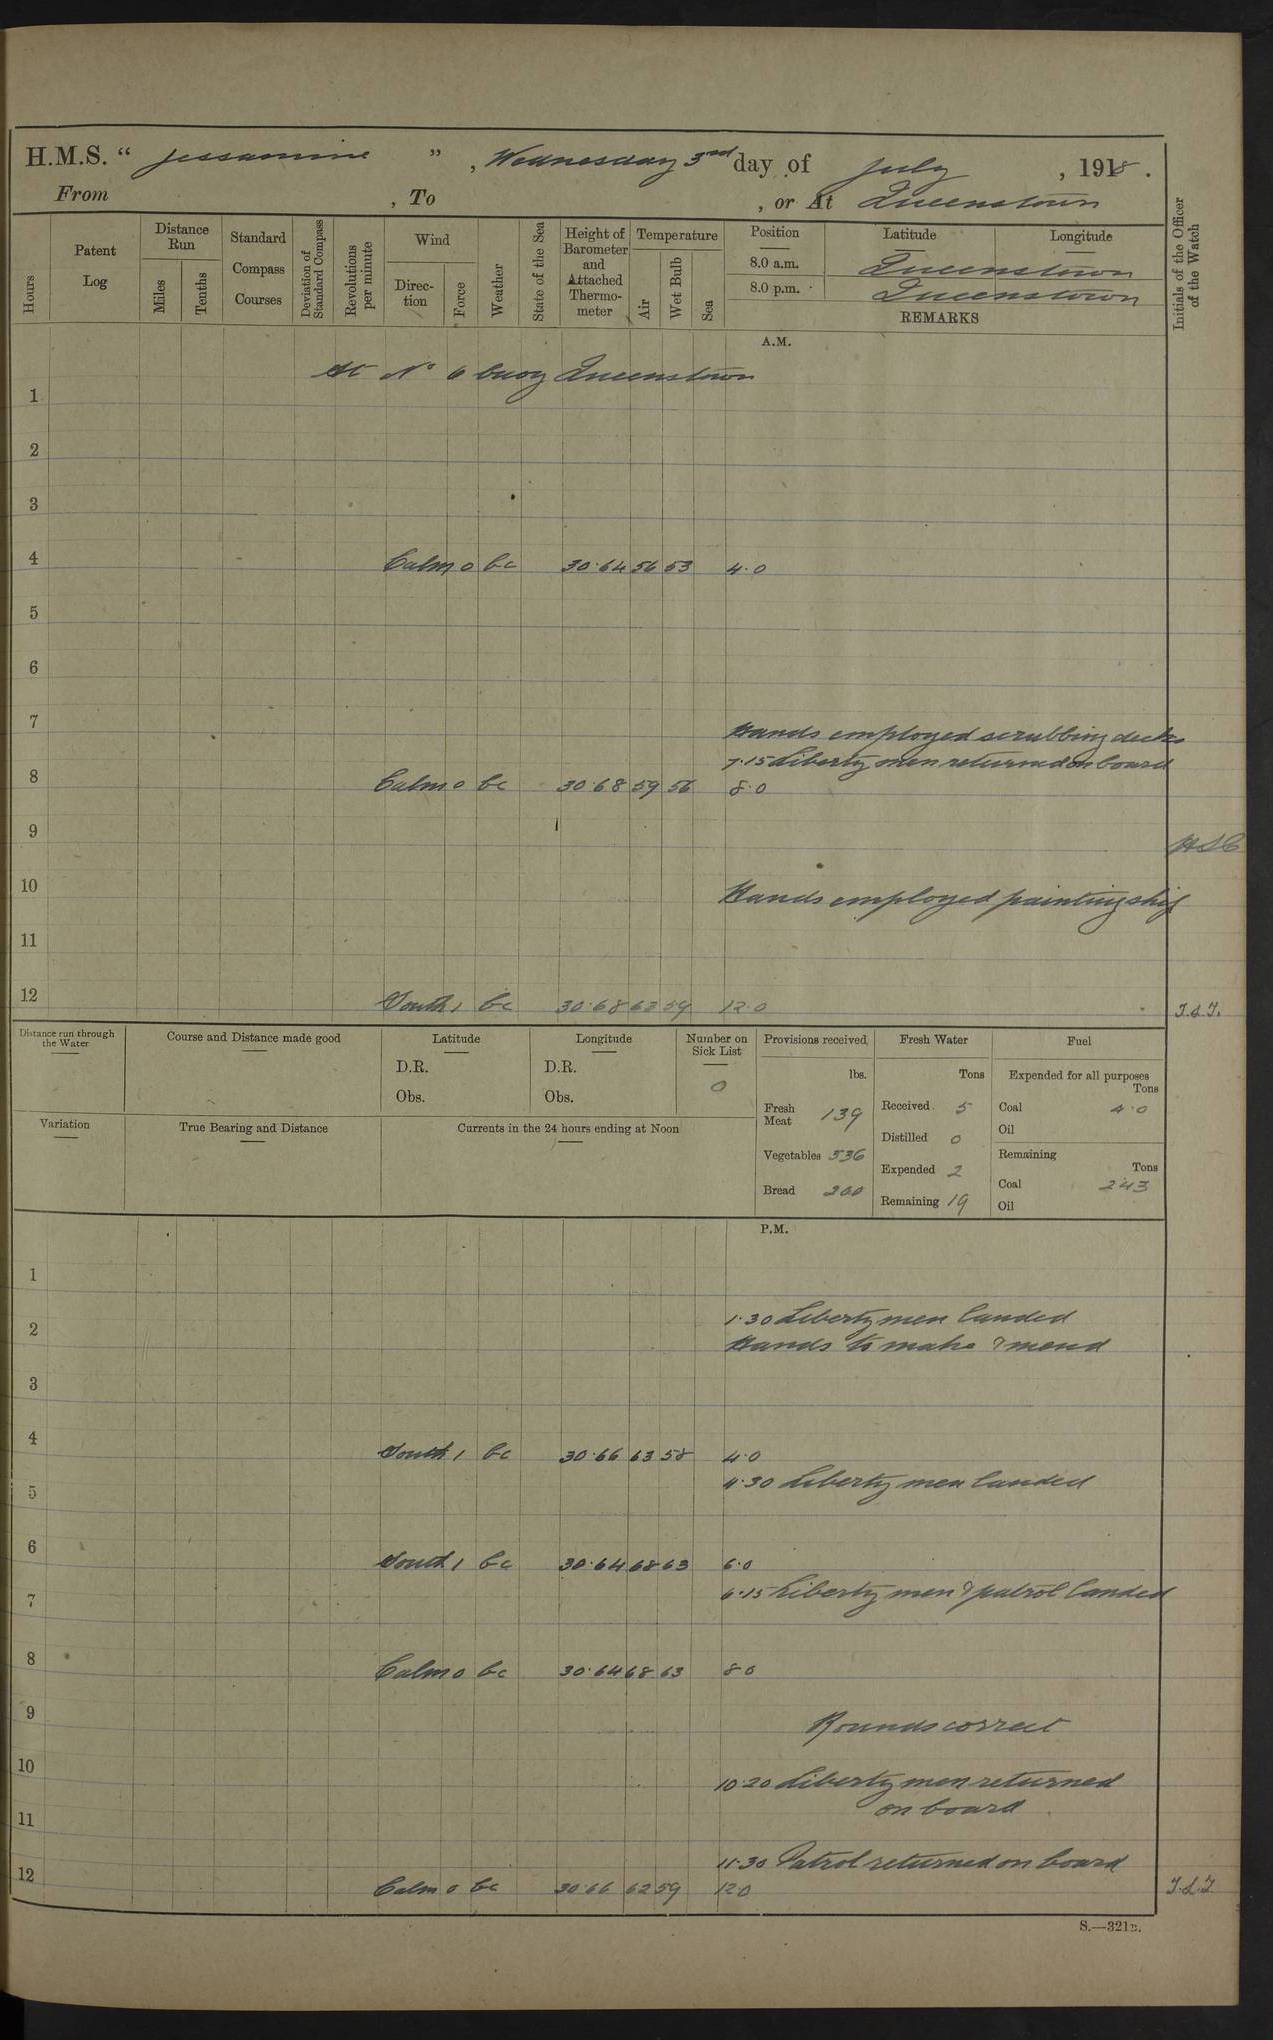 H.M.S. “ Jessamine ” , Wednesday 3rd day of July , 1918 .
From , To , or At Queenstown
Hours
Patent Log
Distance Run
Miles
Tenths
Standard Compass Courses
Deviation of Standard Compass
Revolutions per minute
Wind
Direc-tion
Force
Weather
State of the Sea
Height of Barometer and Attached Thermo-meter
Temperature
Air
Wet Bulb
Sea
Position Latitude Longitude
8.0 a.m. Queenstown
8.0 p.m. Queenstown
REMARKS
Initials of the Officer of the Watch
A.M.
At No 6 buoy Queenstown
1
2
3
4 Calm 0 bc 30.64 56 53 4.0
5
6
7 Hands employed scrubbing decks
7.15 Liberty men returned on board
8 Calm 0 bc 30.68 59 56 8.0
9
10 Hands employed painting ship
11
12 South 1 bc 30.68 63 59 12.0
Distance run through the Water
Course and Distance made good
Latitude
D.R.
Obs.
Longitude
D.R.
Obs.
Number on Sick List
0
Variation
True Bearing and Distance
Currents in the 24 hours ending at Noon
Provisions received
lbs.
Fresh Meat 139
Vegetables 336
Bread 200
Fresh Water
Tons
Received 5
Distilled 0
Expended 2
Remaining 19
Fuel
Expended for all purposes
Tons
Coal 4.0
Oil
Remaining
Tons
Coal 243
Oil
P.M.
1
1.30 Liberty men landed
2 Hands to make & mend
3
4 South 1 bc 30.66 63 58 4.0
4.30 Liberty men landed
5
6 South 1 bc 30.64 68 63 6.0
6.15 Liberty men & patrol landed
7
8 Calm 0 bc 30.64 68 63 8 0
9 Rounds correct
10 10.20 Liberty men returned
on board
11
11.30 Patrol returned on board
12 Calm 0 bc 30.66 62 59 12.0
S.—321B.